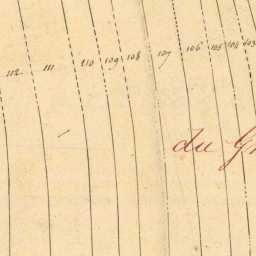 112 111 110 109 108 107 106 105 104 103
du